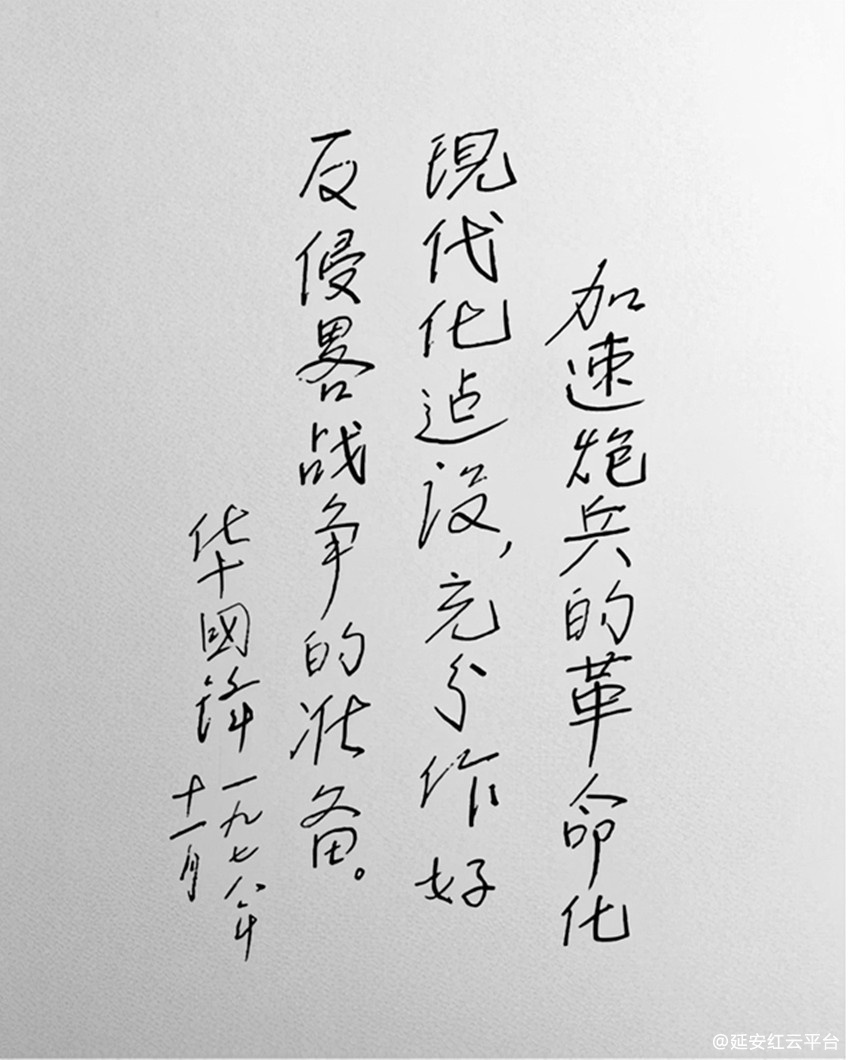 加速炮兵的革命化
现代化建设，充分作好
反侵畧战争的准备。
华國锋
一九七八年
十一月
@延安红云平台